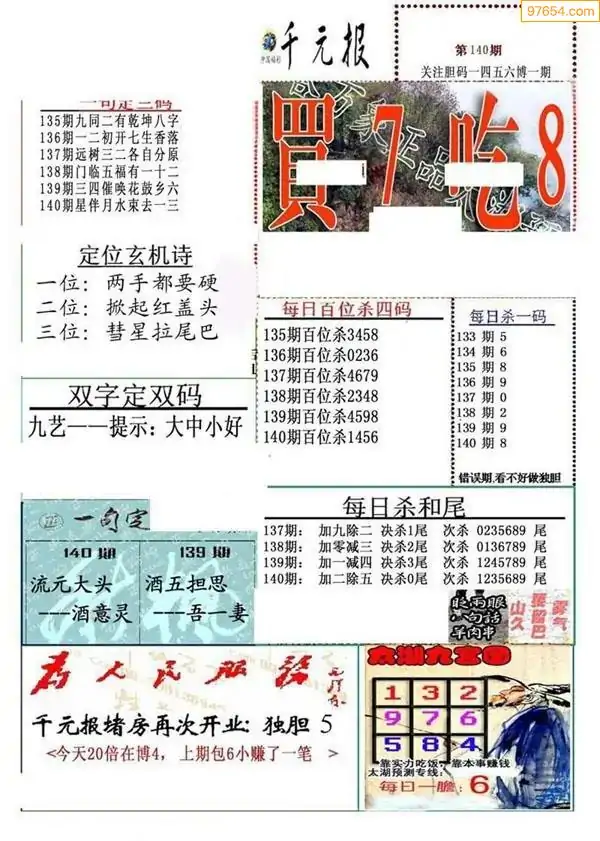 97654.com
千元报
第140期
关注胆码一四五六博一期
一句定三码
135期九同二有乾坤八字
136期一二初开七生香落
137期远树三二各自分原
138期门临五福有一十二
139期三四催唤花鼓乡六
140期星伴月水束去一三
買7吃8
定位玄机诗
一位：两手都要硬
二位：掀起红盖头
三位：彗星拉尾巴
每日百位杀四码
135期百位杀3458
136期百位杀0236
137期百位杀4679
138期百位杀2348
139期百位杀4598
140期百位杀1456
每日杀一码
133 期 5
134 期 6
135 期 8
136 期 9
137 期 0
138 期 2
139 期 9
140 期 8
错误期.看不好做独胆
双字定双码
九艺——提示：大中小好
每日杀和尾
137期： 加九除二 决杀1尾 次杀 0235689 尾
138期： 加零减三 决杀2尾 次杀 0136789 尾
139期： 加一减四 决杀3尾 次杀 1245789 尾
140期： 加二除五 决杀0尾 次杀 1235689 尾
一句定
140期
流元大头
---酒意灵
139期
酒五担思
---吾一妻
眨雨眼
八句話
羊肉串
山久
張留巴
雾气
為人民服務
千元报堵房再次开业：独胆 5
<今天20倍在博4，上期包6小赚了一笔 >
太湖九宫图
1 3 2
9 7 6
5 8 4
靠实力吃饭，靠本事赚钱
太湖预测专线：
每日一胆：6